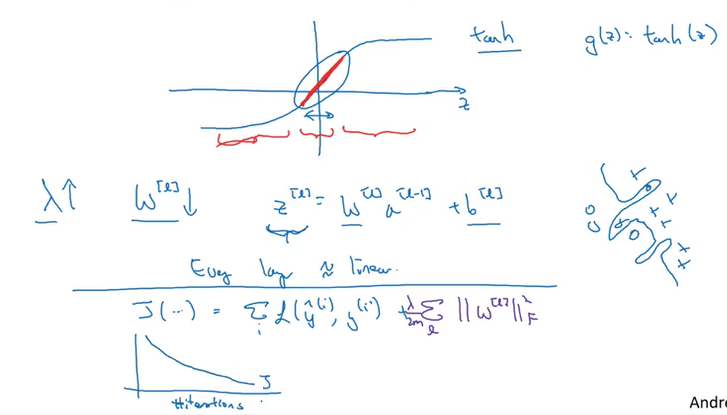 tanh
g(z) = tanh(z)
z
λ↑ W^[l]↓ z^[l] = W^[l] a^[l-1] + b^[l]
Every layer ≈ linear.
J(...) = Σ_i L(ŷ^(i), y^(i)) + λ/2m Σ_l ||W^[l]||²_F
J
#iterations
Andre